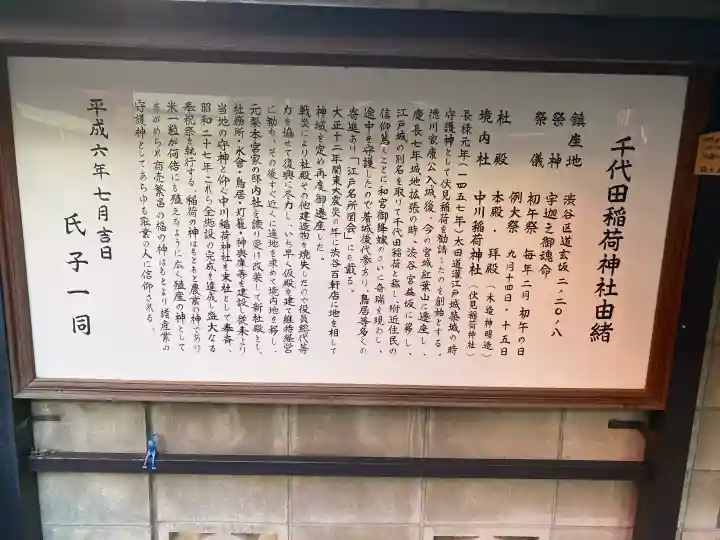 千代田稲荷神社由緒
鎮座地 渋谷区道玄坂二ノ二〇ノ八
祭神 宇迦之御魂命
祭儀 初午祭 毎年二月 初午の日
例大祭 九月十四日・十五日
社殿 本殿・拝殿(木造神明造)
境内社 中川稲荷神社(伏見稲荷神社)
長禄元年(一四五七年)太田道灌江戸城築城の時
守護神として伏見稲荷を勧請したのを創始とする。
徳川家康公入城後、今の宮城紅葉山に遷座し、
慶長七年城地拡張の時、渋谷宮益坂に移し、
江戸城の別名を取りて千代田稲荷と称し附近住民の
信仰篤く、ことに和宮御降嫁のさいに奇瑞を現わし、
途中を守護したので着城後代参あり、鳥居等多くの
寄進あり「江戸名所図会」にも載る。
大正十二年関東大震災の年に渋谷百軒店に地を相して
神域を定め再度御遷座した。
戦災により社殿その他建造物を焼失したので役員総代等
力を協せて復興に尽力し、いち早く仮殿を建て維持経営
に勤も、その後すぐ近くに適地を求めて境内地を移し、
元梨本宮家の邸内社を譲り受け改装して新社殿とし、
社務所・水舎・鳥居・灯籠・神輿庫等を建設し従来より
当地の守神と仰ぐ中川稲荷神社を末社として奉斎、
昭和二十七年これら全施設の完成を達成し盛大なる
奉祝祭を執行する。稲荷の神はもともと農業の神であり
米一粒が何倍にも殖えるように広く殖産の神として
あがめられ商売繁昌の福の神はもとより諸産業の
守護神としてあらゆる職業の人に信仰される。
平成六年七月吉日
氏子一同